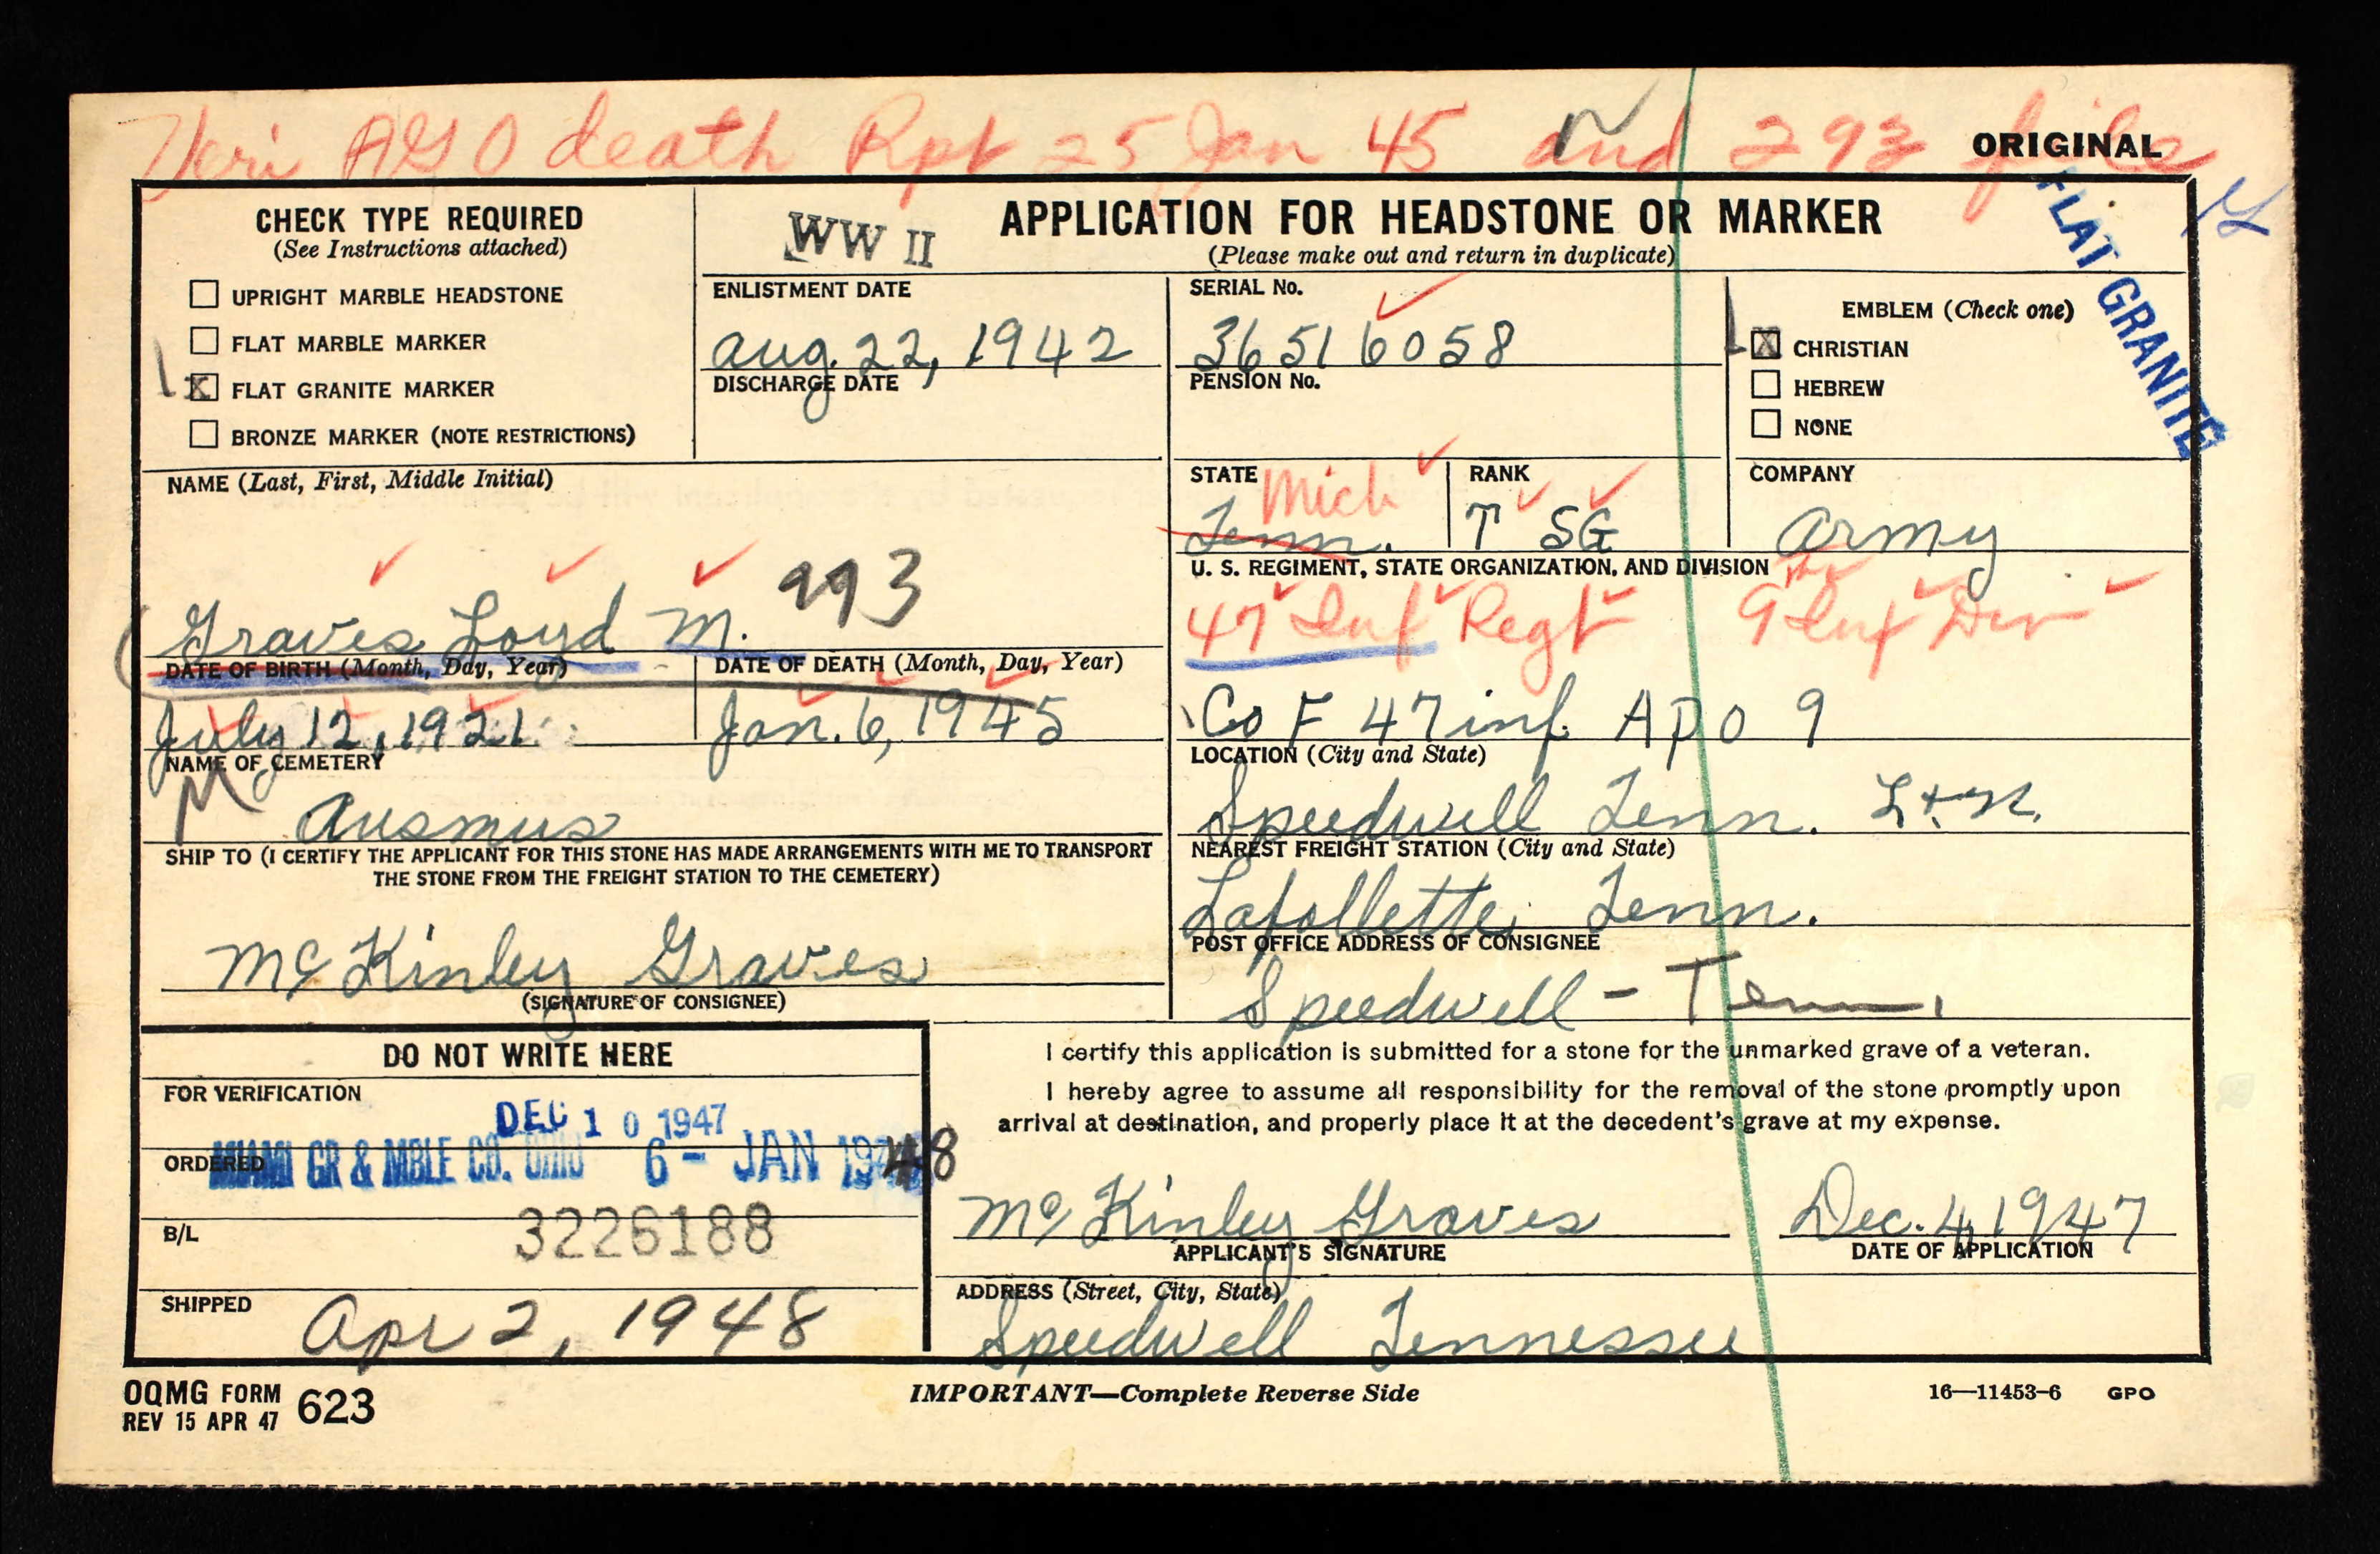 Veri AGO death Rpt 25 Jan 45 and 293 file
ORIGINAL
CHECK TYPE REQUIRED
(See Instructions attached)
UPRIGHT MARBLE HEADSTONE
FLAT MARBLE MARKER
X FLAT GRANITE MARKER
BRONZE MARKER (NOTE RESTRICTIONS)
WW II
APPLICATION FOR HEADSTONE OR MARKER
(Please make out and return in duplicate)
FLAT GRANITE
ENLISTMENT DATE
Aug. 22, 1942
DISCHARGE DATE
SERIAL No.
36516058
PENSION No.
EMBLEM (Check one)
X CHRISTIAN
HEBREW
NONE
NAME (Last, First, Middle Initial)
Graves Loyd M. 993
STATE
Tenn. Mich
RANK
T SG
COMPANY
Army
U. S. REGIMENT, STATE ORGANIZATION, AND DIVISION
47 Inf Regt 9th Inf Div
Co F 47 inf. APO 9
DATE OF BIRTH (Month, Day, Year)
July 12, 1921
DATE OF DEATH (Month, Day, Year)
Jan. 6, 1945
NAME OF CEMETERY
Ausmus
LOCATION (City and State)
Speedwell Tenn. L+N.
SHIP TO (I CERTIFY THE APPLICANT FOR THIS STONE HAS MADE ARRANGEMENTS WITH ME TO TRANSPORT
THE STONE FROM THE FREIGHT STATION TO THE CEMETERY)
McKinley Graves
(SIGNATURE OF CONSIGNEE)
NEAREST FREIGHT STATION (City and State)
Lafollette, Tenn.
POST OFFICE ADDRESS OF CONSIGNEE
Speedwell - Tenn.
DO NOT WRITE HERE
FOR VERIFICATION
DEC 10 1947
ORDERED
MIAMI GR & MBLE CO. OHIO 6 - JAN 1948
B/L
3226188
SHIPPED
Apr 2, 1948
I certify this application is submitted for a stone for the unmarked grave of a veteran.
I hereby agree to assume all responsibility for the removal of the stone promptly upon
arrival at destination, and properly place it at the decedent's grave at my expense.
McKinley Graves
APPLICANT'S SIGNATURE
Dec. 4, 1947
DATE OF APPLICATION
ADDRESS (Street, City, State)
Speedwell Tennessee
OQMG FORM 623
REV 15 APR 47
IMPORTANT—Complete Reverse Side
16—11453-6 GPO